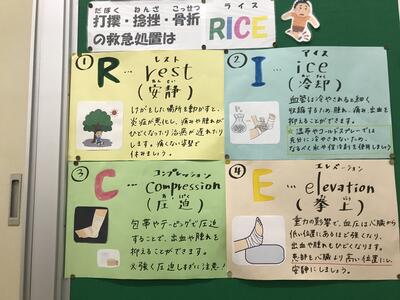 だぼく ねんざ こっせつ
打撲・捻挫・骨折
の救急処置は
ライス
RICE
①
レスト
R…rest
あんせい
(安静)
けがをした場所を動かすと、
炎症が悪化し、痛みや腫れが
ひどくなったり治癒が遅れたり
します。痛くない姿勢で
休みましょう。
②
アイス
I…ice
れいきゃく
(冷却)
血管は冷やされると細く
収縮するため、腫れ、痛み、出血を
抑えることができます。
☆湿布やコールドスプレーでは
充分に冷やされないため、
なるべく氷や保冷剤を使用しましょう
③
コンプレッション
C…compression
あっぱく
(圧迫)
包帯やテーピングで圧迫
することで、出血や腫れを
抑えることができます。
※強く圧迫しすぎに注意!
④
エレベーション
E…elevation
きょじょう
(挙上)
重力の影響で、血圧は心臓から
低い位置にあるほど強くなり、
出血や腫れもひどくなります。
患部を心臓より高い位置にし、
安静にしましょう。